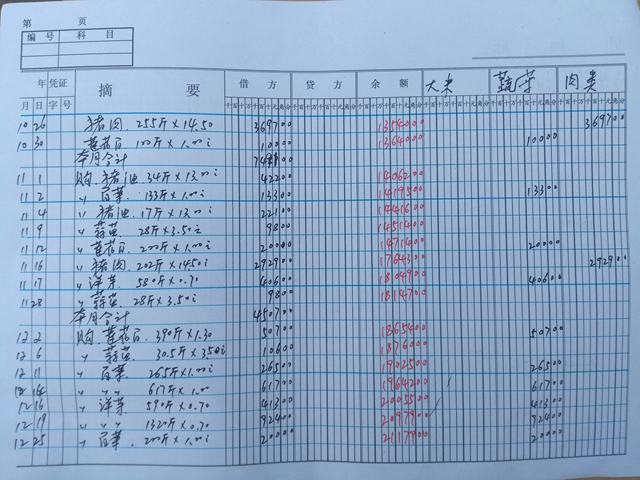 第 页
编号 科目
年 凭证 摘要 借方 贷方 余额 大米 蔬菜 肉类
月 日 字 号 千百十万千百十元角分 千百十万千百十元角分 千百十万千百十元角分
10 26 猪肉.255斤×14.50 369700 1354000 369700
10 30 莲花白 100斤×1.00 10000 1364000 10000
本月合计
11 1 购.猪油.34斤×13.00 42200 1406200
11 2 〃 白菜 133斤×1.00 13300 1419500 13300
11 4 〃 猪油 17斤×13.00 22100 1441600
11 9 〃 蒜苗 28斤×3.50 9800 1451400
11 12 〃 莲花白 200斤×1.00 20000 1471400 20000
11 16 〃 猪肉 202斤×14.50 292900 1764300 292900
11 17 〃 洋芋 580斤×0.70 40600 1804900 40600
11 28 〃 蒜苗.28斤×3.50 9800 1814700
本月合计 450700
12 2 购 莲花白.390斤×1.30 50700 1865400 50700
12 6 〃 蒜苗 30.5斤×3.50 10600 1876000
12 11 〃 白菜 265斤×1.00 26500 1902500 26500
12 〃 〃 617斤×1.00 61700 1964200 61700
12 16 〃 洋芋 590斤×0.70 41300 2005500 41300
12 19 〃 〃 1320斤×0.70 92400 2097900 92400
12 25 〃 白菜 200斤×1.00 20000 2117900 20000